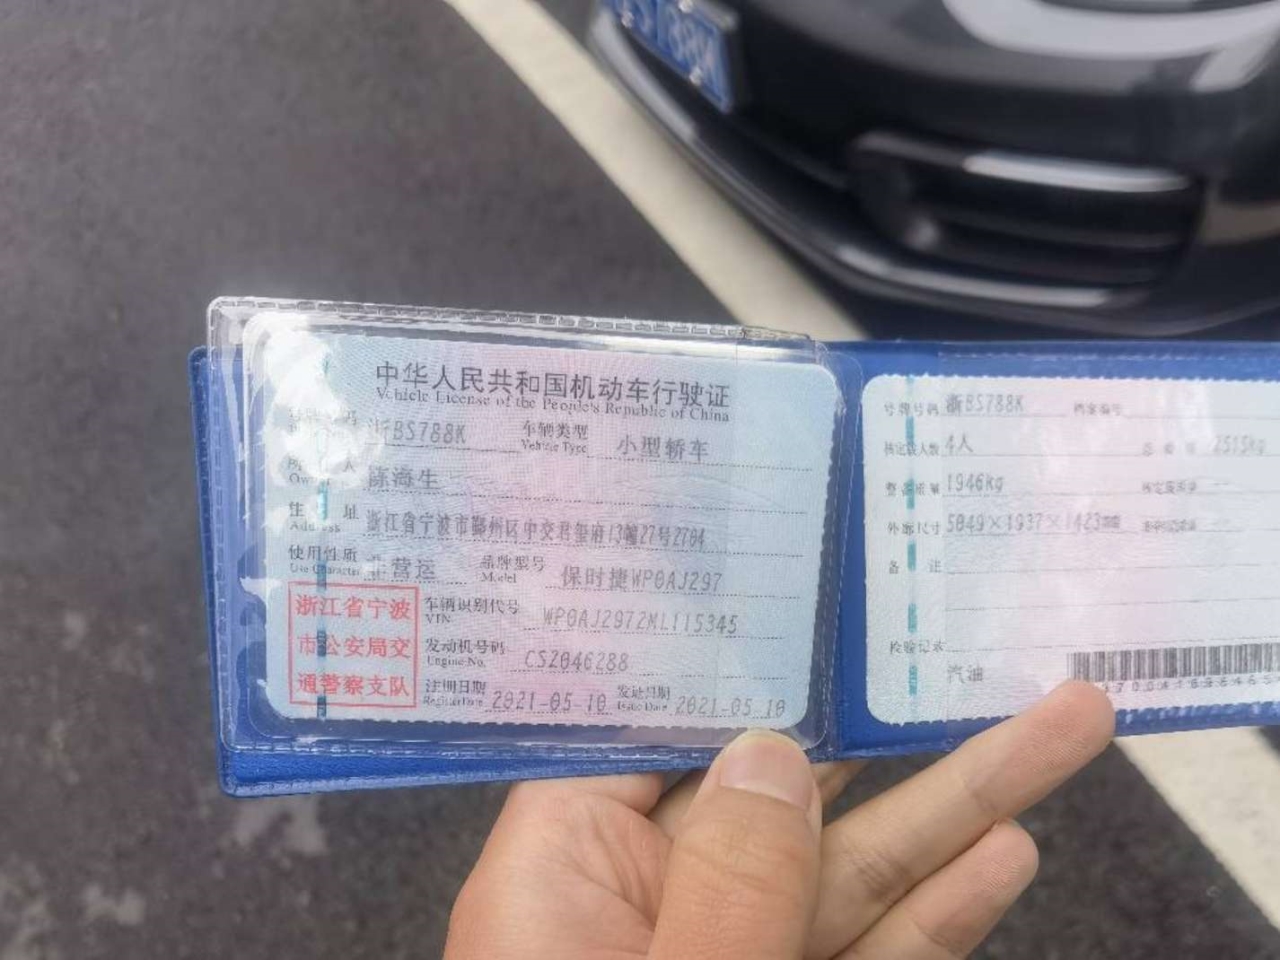 中华人民共和国机动车行驶证
Vehicle License of the People's Republic of China
浙BS788K 车辆类型 小型轿车
Vehicle Type
陈海生
Owner
住 址 浙江省宁波市鄞州区中交君玺府13幢27号2704
Address
使用性质 非营运 品牌型号 保时捷WP0AJ297
Use Character Model
浙江省宁波
市公安局交
通警察支队
车辆识别代号 WP0AJ2972ML115345
VIN
发动机号码 CS2046288
Engine No.
注册日期 2021-05-10 发证日期 2021-05-10
Register Date Issue Date
号牌号码 浙BS788K 档案编号
核定载人数 4人 总质量 2515kg
整备质量 1946kg 核定载质量
外廓尺寸 5049×1937×1423mm
备 注
检验记录
汽油